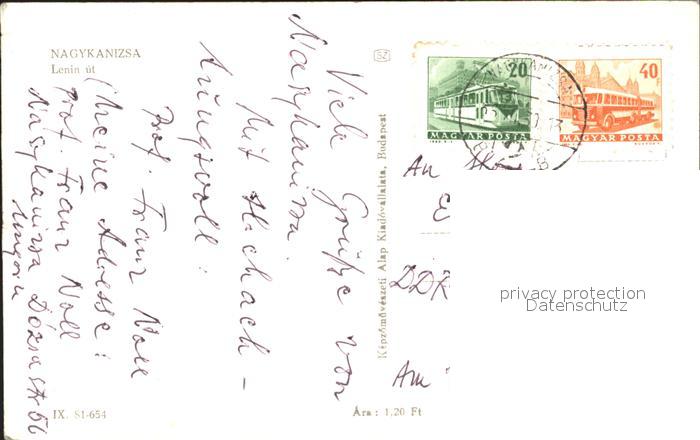 NAGYKANIZSA
Lenin út
Viele Grüße von
Nagykanizsa.
Mit Hochach-
tungsvoll:
Prof. Franz Noll
(Meine Adresse:
Prof. Franz Noll
Nagykanizsa Dózsa str 56
Ungarn
IX. 81-654
Képzőművészeti Alap Kiadóvállalata, Budapest
Ára: 1,20 Ft
20
MAGYAR POSTA
40
MAGYAR POSTA
An
DDR
Am
privacy protection
Datenschutz